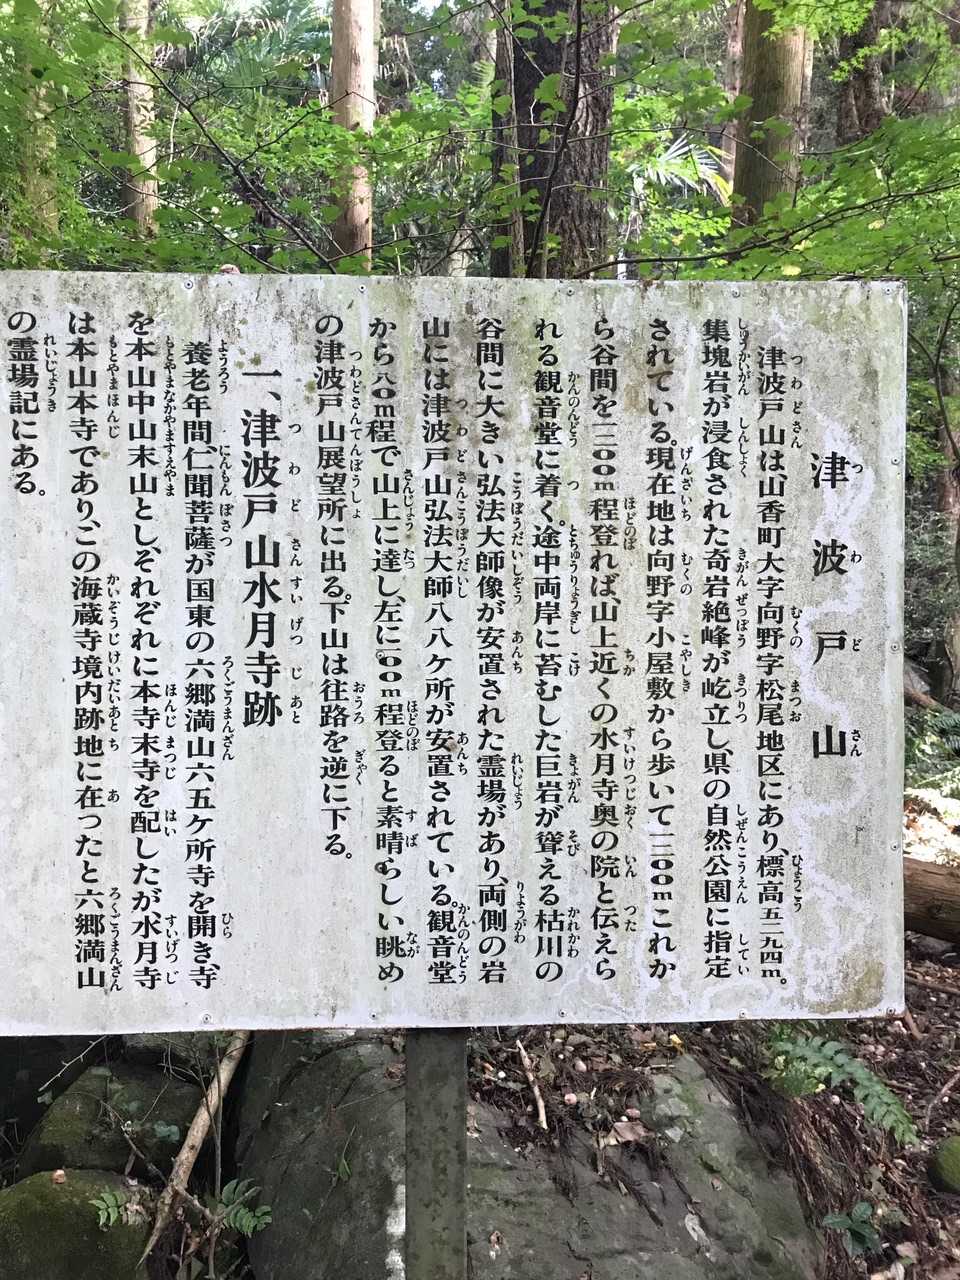 津波戸山
津波戸山は、山香町大字向野字松尾地区にあり、標高五二九四m。
集塊岩が浸食された奇岩絶峰が屹立し、県の自然公園に指定
されている。現在地は向野字小屋敷から歩いて一二〇〇mこれか
ら谷間を一二〇〇m程登れば、山上近くの水月寺奥の院と伝えら
れる観音堂に着く。途中両岸に苔むした巨岩が聳える枯川の
谷間に大きい弘法大師像が安置された霊場があり、両側の岩
山には津波戸山弘法大師八八ケ所が安置されている。観音堂
から八〇m程で山上に達し、左に一〇〇m程登ると素晴らしい眺め
の津波戸山展望所に出る。下山は往路を逆に下る。
一、津波戸山水月寺跡
養老年間、仁聞菩薩が国東の六郷満山六五ケ所寺を開き、寺
を本山中山末山とし、それぞれに本寺末寺を配したが、水月寺
は本山本寺であり、この海蔵寺境内跡地に在ったと六郷満山
の霊場記にある。